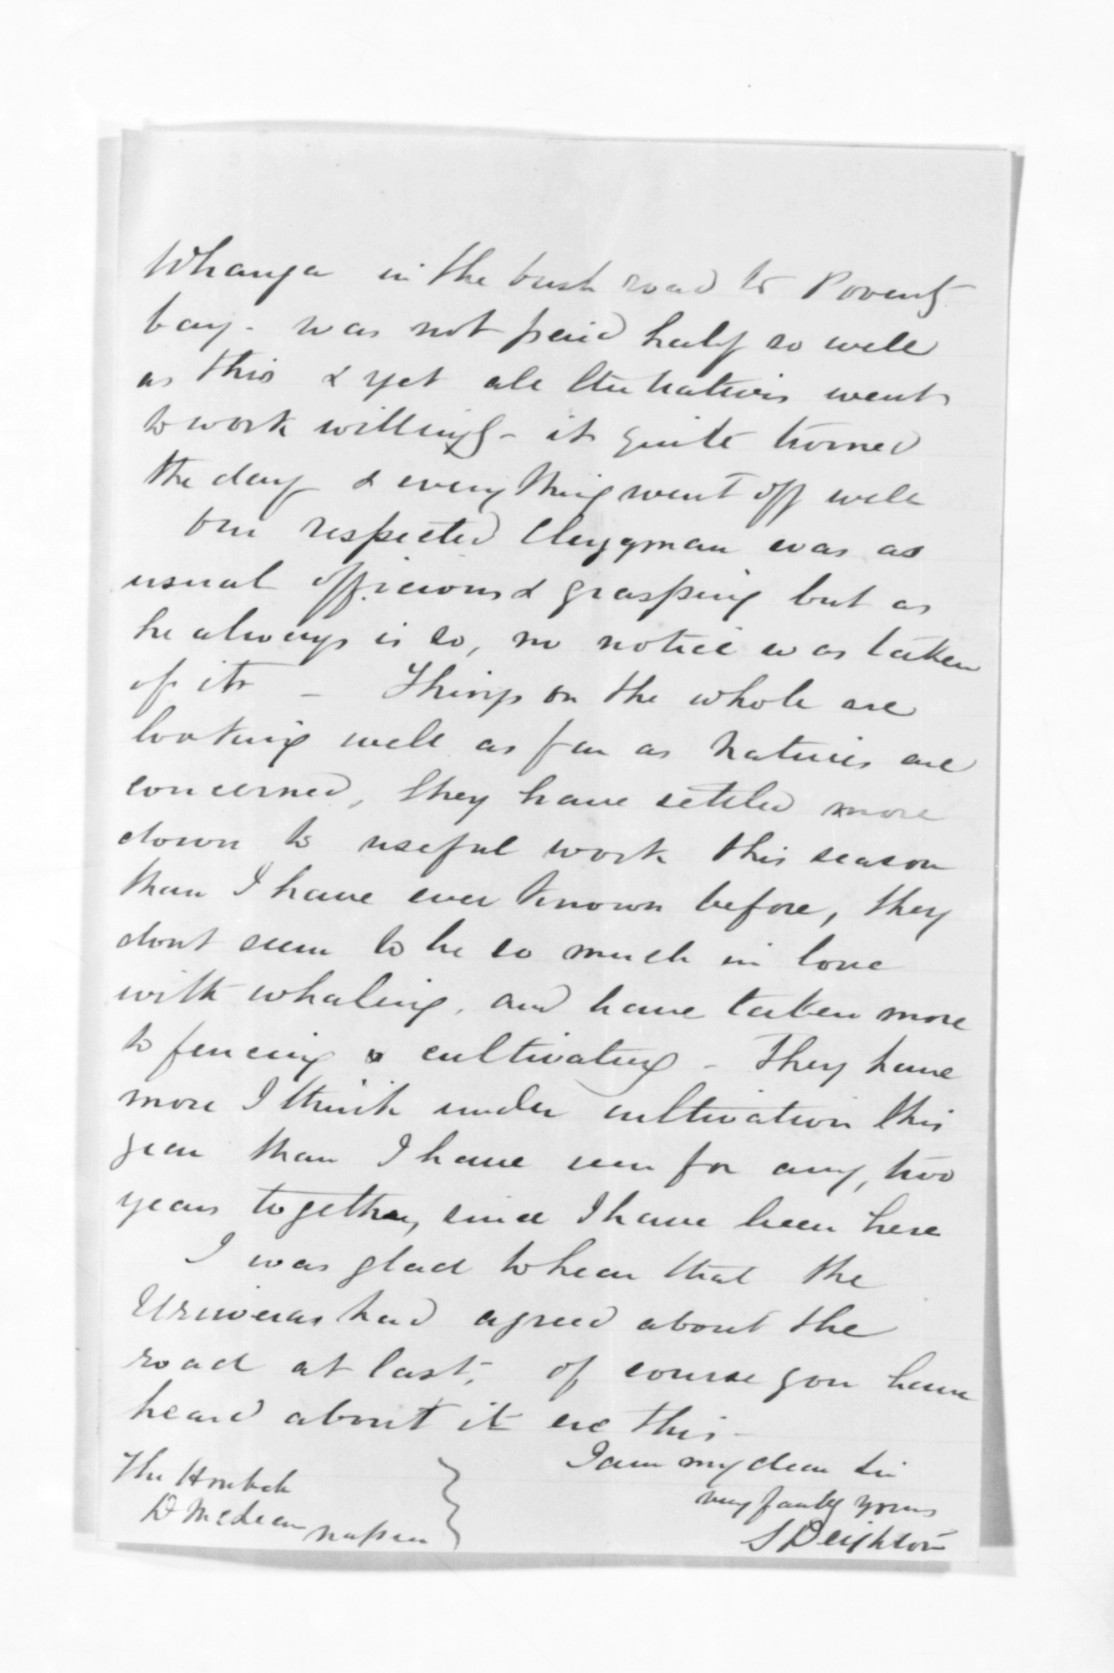 Whanga in the bush road to Poverty
bay - was not paid half so well
as this & yet all the natives went
to work willingly - it quite turned
the day & everything went off well
Our respected Clergyman was as
usual officious & grasping but as
he always is so, no notice was taken
of it - Things on the whole are
looking well as far as natives are
concerned, they have settled more
down to useful work this season
than I have ever known before, they
dont seem to be so much in love
with whaling, and have taken more
to fencing & cultivating - They have
more I think under cultivation this
year than I have seen for any, two
years together, since I have been here
I was glad to hear that the
Uriweras had agreed about the
road at last, of course you have
heard about it ere this -
I am my dear Sir
very faithly yours
S Deighton
The Honbele
D McLean
Napier